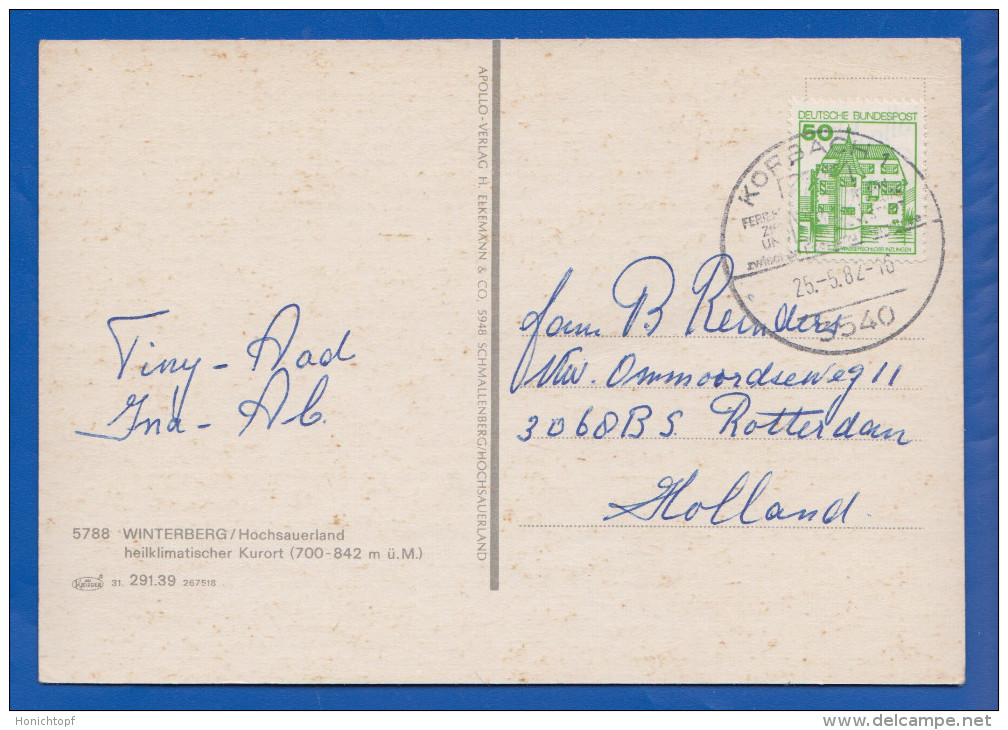 Tiny - Aad
Ina - Ab.
5788 WINTERBERG/Hochsauerland
heilklimatischer Kurort (700-842 m ü.M.)
31. 291.39 267518
APOLLO-VERLAG H. ELKEMANN & CO, 5948 SCHMALLENBERG/HOCHSAUERLAND
DEUTSCHE BUNDESPOST
50
WASSERSCHLOSS INZLINGEN
KORBACH 1
25.-5.82-16
3540
Fam B Reinders
Nw. Ommoordseweg 11
3068BS Rotterdam
Holland
Honichtopf
www.delcampe.net